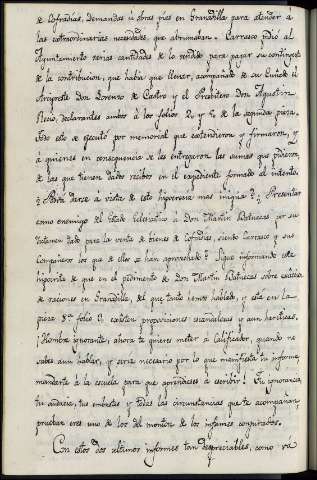 de Cofradias, demandas ú obras pies en Granadilla para atender a
las extraordinarias necesidades que abrumaban. Carrasco pidió al
Ayuntamiento varias cantidades de lo vendido para pagar su contingente
de la contribucion, que habia que llevar, acompañado de su Cuñado el
Arcipreste Don Lorenzo de Castro y el Presbitero Don Agustin
Recio, declarantes ambos à los folios 2 y 4 de la segunda pieza.
Todo esto se ejecutó por memorial que extendieron y firmaron, y
à quienes en consequencia se les entregaron las sumas que pidieron,
de las que tienen dados recibos en el expediente formado al intento.
¿Podra darse à vista de esto hipocresia mas iniqua? ¿Presentar
como enemigo del Estado Eclesiastico à Don Martin Batuecas por su
dictamen dado para la venta de bienes de Cofradias, siendo Carrasco y sus
Compañeros los que de ellos se han aprovechado? Sigue informando este
hipocrita de que en el pedimento de Don Martin Batuecas sobre
de raciones en Granadilla, de que tanto hemos hablado, y esta en la
pieza 3ª folio 9, existen proposiciones escandalosas y aun hereticas.
¡Hombre ignorante, ahora te quieres meter à calificador, quando no
sabes aun hablar, y seria necesario por lo que manifiesta tu informe,
mandarte à la escuela para que aprendieses a escribir! Tu ignorancia,
tu audacia, tus embustes y todas las circunstancias que te acompañan,
prueban eres uno de los del monton de los infames conjurados.
Con estos dos ultimos informes tan despreciables, como su